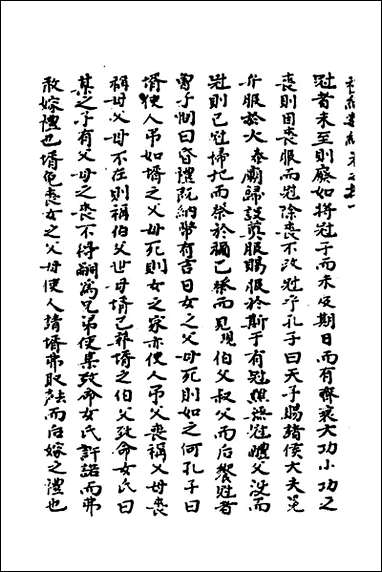 冠者未至則廢如將冠子而未及期日而有齊衰大功小功之
喪則因喪服而冠除喪不改冠乎孔子曰天子賜諸侯大夫冕
弁服於大廟歸設奠服賜服於斯乎有冠醮無冠醴父没而
冠則已冠掃地而祭於禰已祭而見伯父叔父而后饗冠者
曾子問曰昏禮既納幣有吉日女之父母死則如之何孔子曰
壻使人吊如壻之父母死則女之家亦使人吊父喪稱父母喪
稱母父母不在則稱伯父世母壻已葬壻之伯父致命女氏曰
某之子有父母之喪不得嗣為兄弟使某致命女氏許諾而弗
敢嫁禮也壻免喪女之父母使人請壻弗取而后嫁之禮也